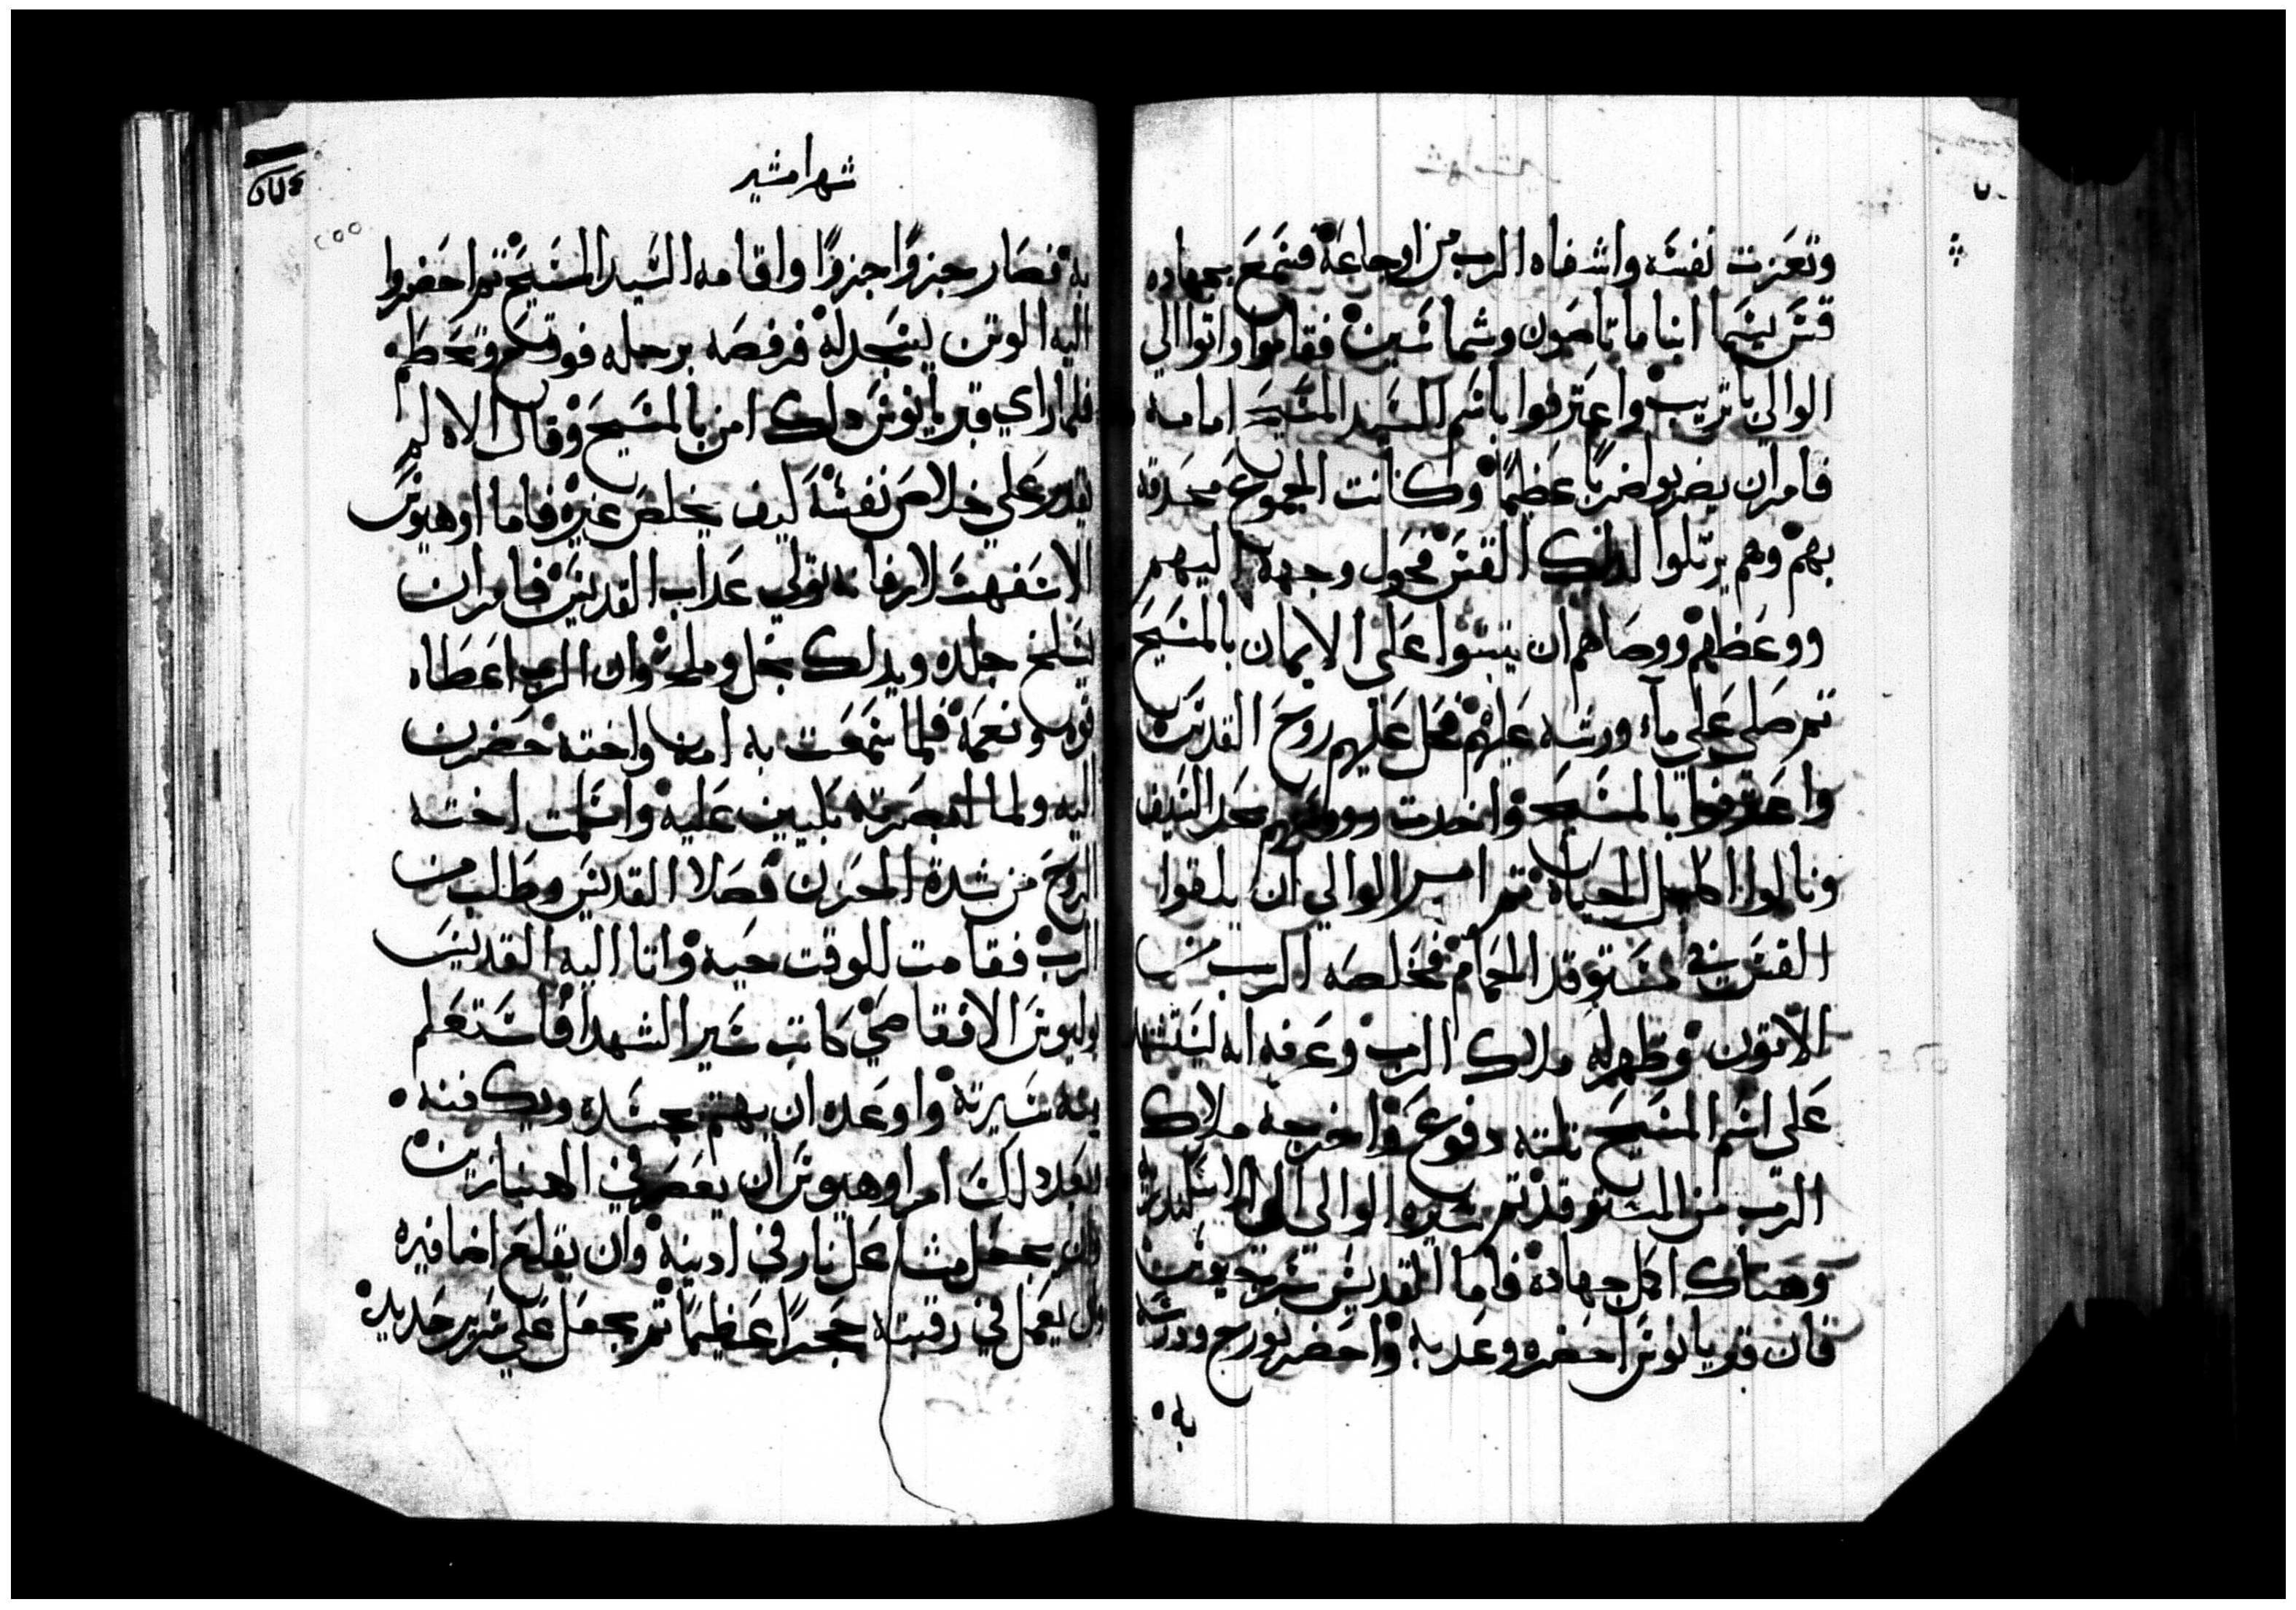 وتعزت نفسه واشفاه الرب من اوجاعه فسمع بجهاده
قس يسما ابنامانا صون وشماسين فقاموا واتوا الي
الوالي باتريب واعترفوا باسم السيد المسيح امامه
فامر ان يضربوا ضربا عظيما وكانت الجموع محدقه
بهم وهم يرتلوا لدلك القس فحول وجهه اليهم
ووعظهم ووصاهم ان يتبتوا علي الايمان بالمسيح
تم صلي علي ماء ورشه عليهم فحل عليهم روح القدس
واعترفوا بالمسيح واخدت رووسهم بحد السيف
ونالوا اكليل الحياه تم امر الوالي ان يلقوا
القس في مستوقد الحمام فخلصه الرب من
الاتون وظهر له ملاك الرب وعرفه انه ليستشهد
علي اسم المسيح تلته دفوع واخرجه ملاك
الرب من المستوقد تم سيره الوالي الي الاسكندريه
وهناك اكمل جهاده فاما القديس سرجيوس
فان قبريانوس احضره وعدبه واحضر نورج ودرسه
به
شهر امشير
به فصار جزوا جزوا واقامه السيد المسيح تم احضروا
اليه الوتن ليسجد له فرفصه برجله فوقع وتحطم
فلما راي قبريانوس دلك امن بالمسيح وقال الاه لم
يقدر علي خلاص نفسه كيف يخلص غيره فاما اوهيوس
الاسفهسلار فانه تولي عداب القديس فامر ان
يسلخ جلده ويدلك بخل وملح وان الرب اعطاه
قوه ونعمه فلما سمعت به امه واخته حضرن
اليه ولما ابصرته بكيين عليه واسلمت اخته
الروح من شدة الحزن فصلا القديس وطلب من
الرب فقامت للوقت حيه واتا اليه القديس
يوليوس الاقفاصي كاتب سير الشهدا فاستعلم
منه سيرته واوعده ان يهتم بجسده ويكفنه
بعد دلك امر اوهيوس ان يعصر في الهنبازين
وان يجعل مشاعل نار في ادنيه وان يقلع اضافيره
وان يعمل في رقبته حجرا عظيما تم يجعل علي سرير حديد